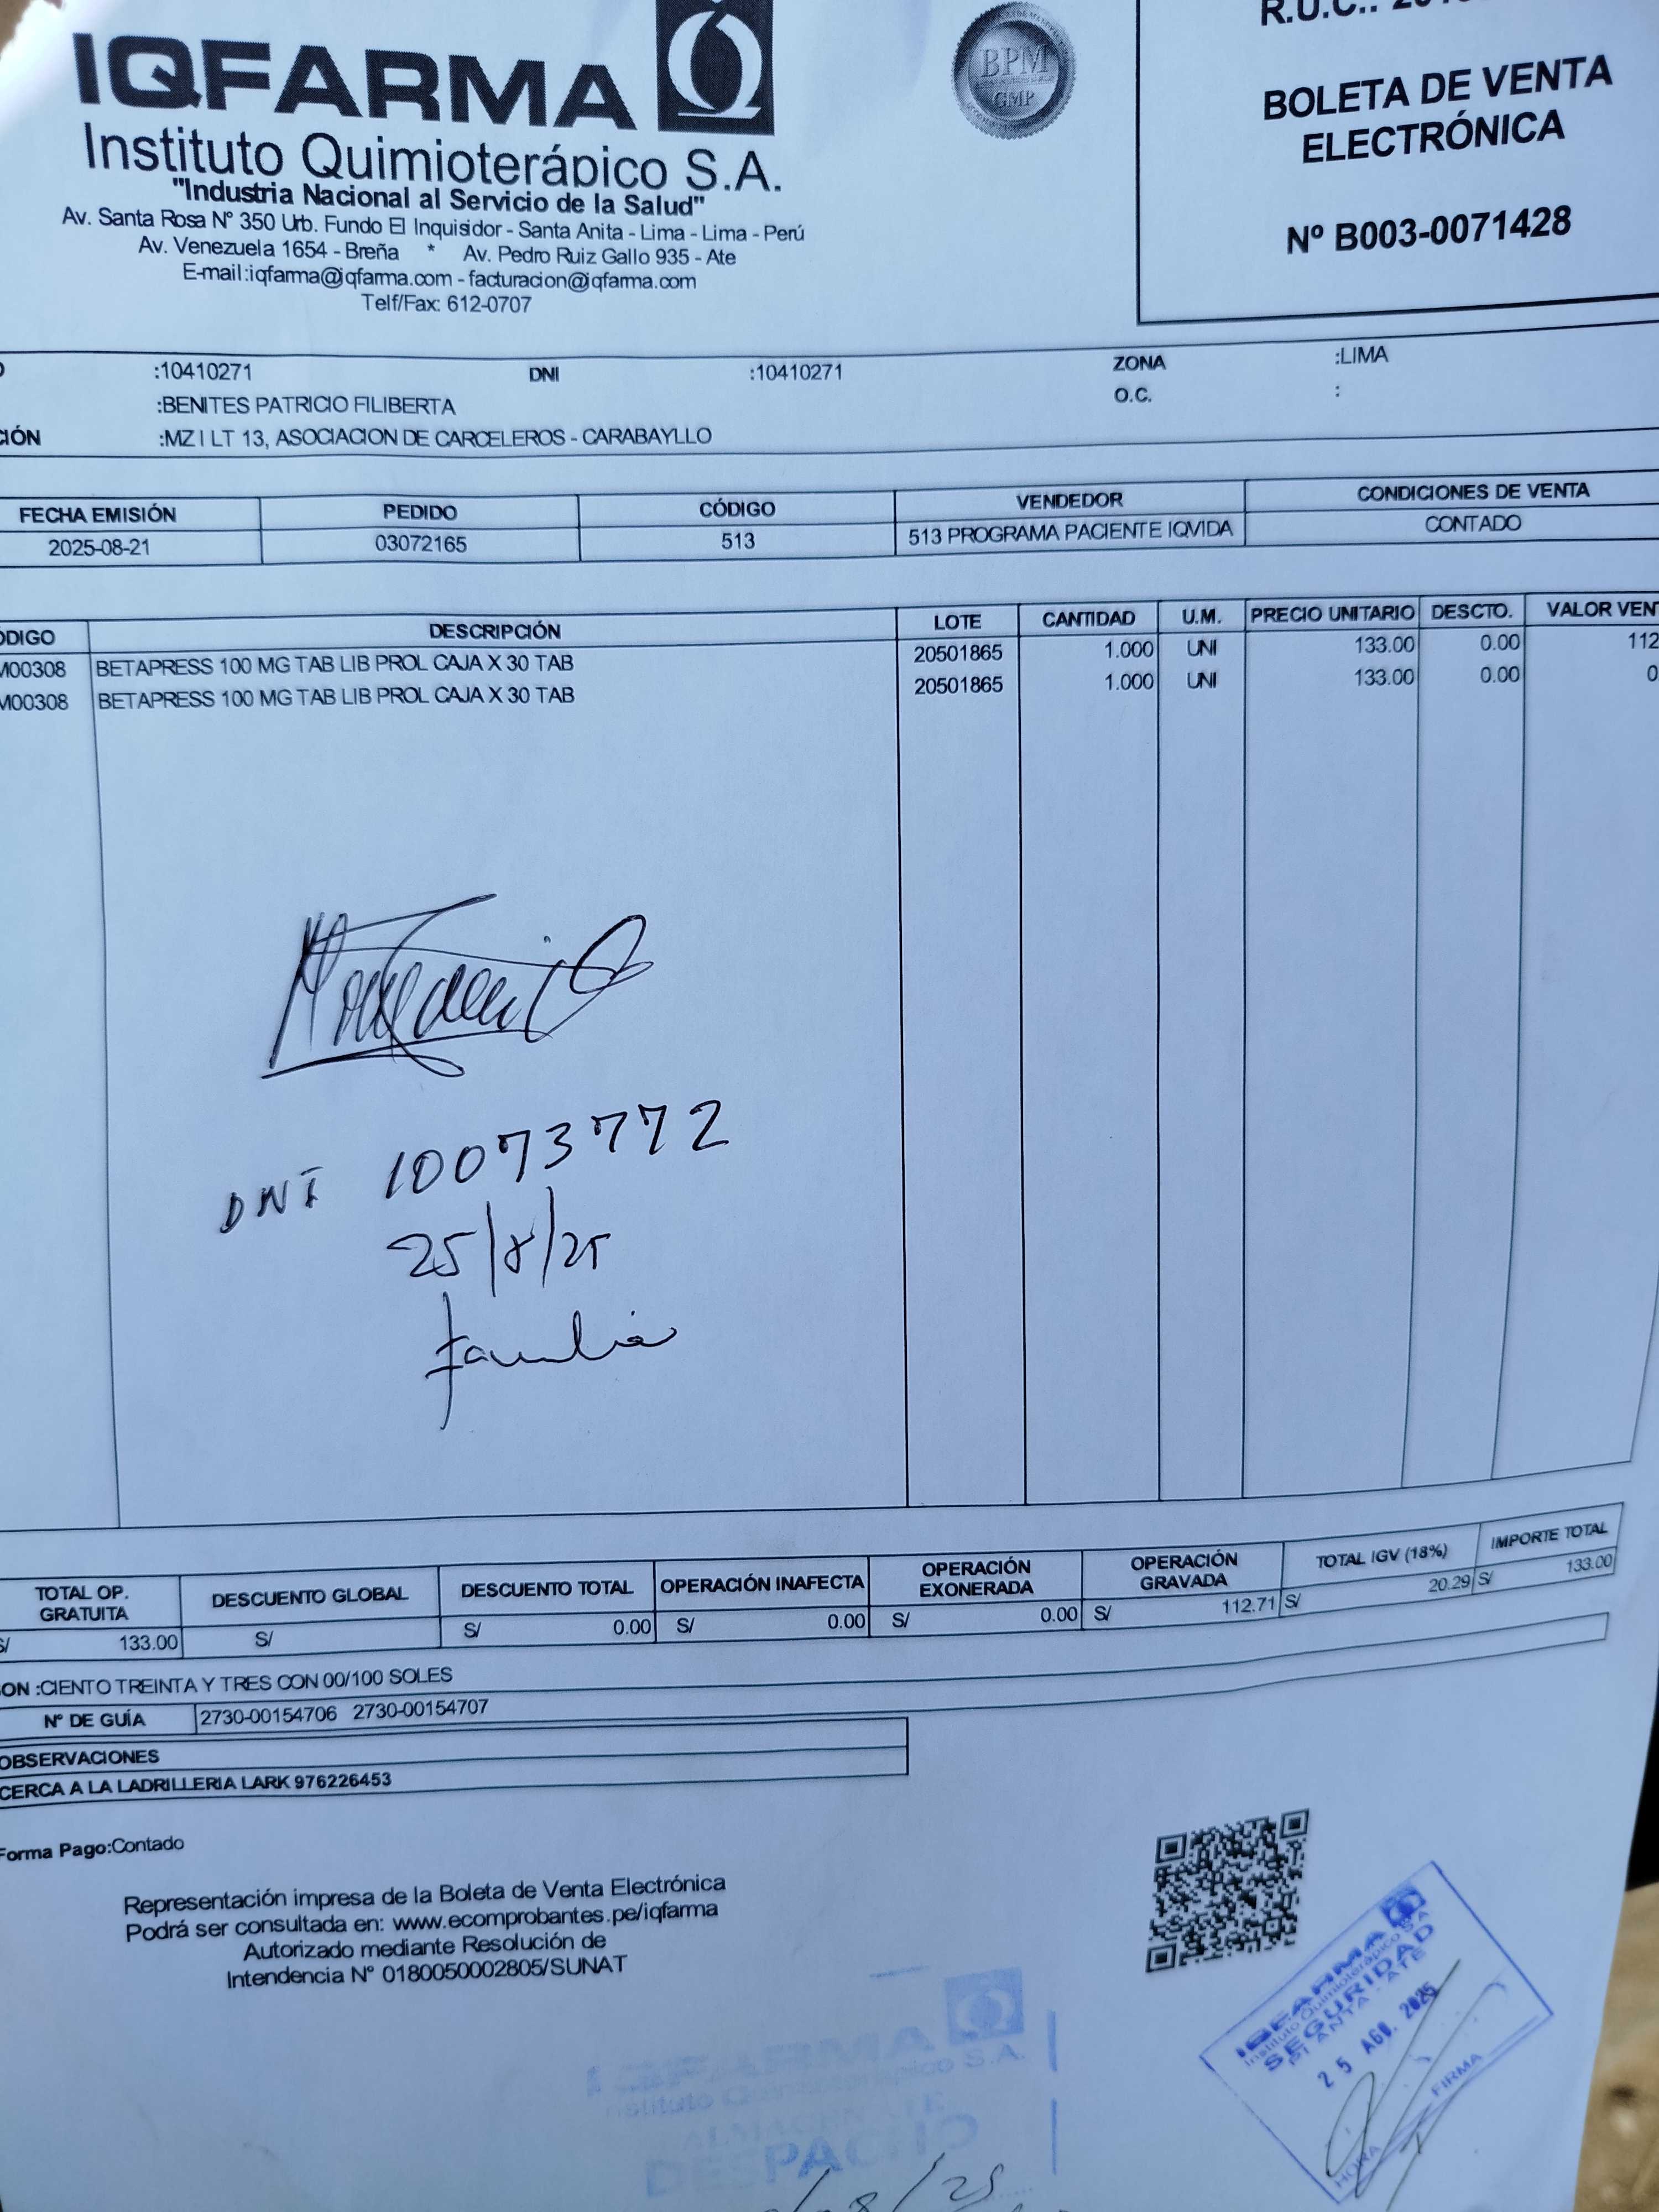 IQFARMA
Instituto Quimioterápico S.A.
"Industria Nacional al Servicio de la Salud"
Av. Santa Rosa Nº 350 Urb. Fundo El Inquisidor - Santa Anita - Lima - Lima - Perú
Av. Venezuela 1654 - Breña * Av. Pedro Ruiz Gallo 935 - Ate
E-mail:iqfarma@iqfarma.com - facturacion@iqfarma.com
Telf/Fax: 612-0707
BPM
GMP
R.U.C.:
BOLETA DE VENTA
ELECTRÓNICA
Nº B003-0071428
:10410271 DNI :10410271 ZONA :LIMA
:BENITES PATRICIO FILIBERTA O.C. :
CIÓN :MZ I LT 13, ASOCIACION DE CARCELEROS - CARABAYLLO
FECHA EMISIÓN PEDIDO CÓDIGO VENDEDOR CONDICIONES DE VENTA
2025-08-21 03072165 513 513 PROGRAMA PACIENTE IQVIDA CONTADO
ÓDIGO DESCRIPCIÓN LOTE CANTIDAD U.M. PRECIO UNITARIO DESCTO. VALOR VENT
M00308 BETAPRESS 100 MG TAB LIB PROL CAJA X 30 TAB 20501865 1.000 UNI 133.00 0.00 112
M00308 BETAPRESS 100 MG TAB LIB PROL CAJA X 30 TAB 20501865 1.000 UNI 133.00 0.00 0
DNI 10073772
25/8/25
TOTAL OP. GRATUITA DESCUENTO GLOBAL DESCUENTO TOTAL OPERACIÓN INAFECTA OPERACIÓN EXONERADA OPERACIÓN GRAVADA TOTAL IGV (18%) IMPORTE TOTAL
S/ 133.00 S/ S/ 0.00 S/ 0.00 S/ 0.00 S/ 112.71 S/ 20.29 S/ 133.00
ON :CIENTO TREINTA Y TRES CON 00/100 SOLES
Nº DE GUÍA 2730-00154706 2730-00154707
OBSERVACIONES
CERCA A LA LADRILLERIA LARK 976226453
Forma Pago:Contado
Representación impresa de la Boleta de Venta Electrónica
Podrá ser consultada en: www.ecomprobantes.pe/iqfarma
Autorizado mediante Resolución de
Intendencia Nº 0180050002805/SUNAT
IQFARMA
Instituto Quimioterápico S.A.
SEGURIDAD
PLANTA - ATE
25 AGO. 2025
HORA FIRMA
IQFARMA
Instituto Quimioterápico S.A.
ALMACEN ATE
DESPACHO